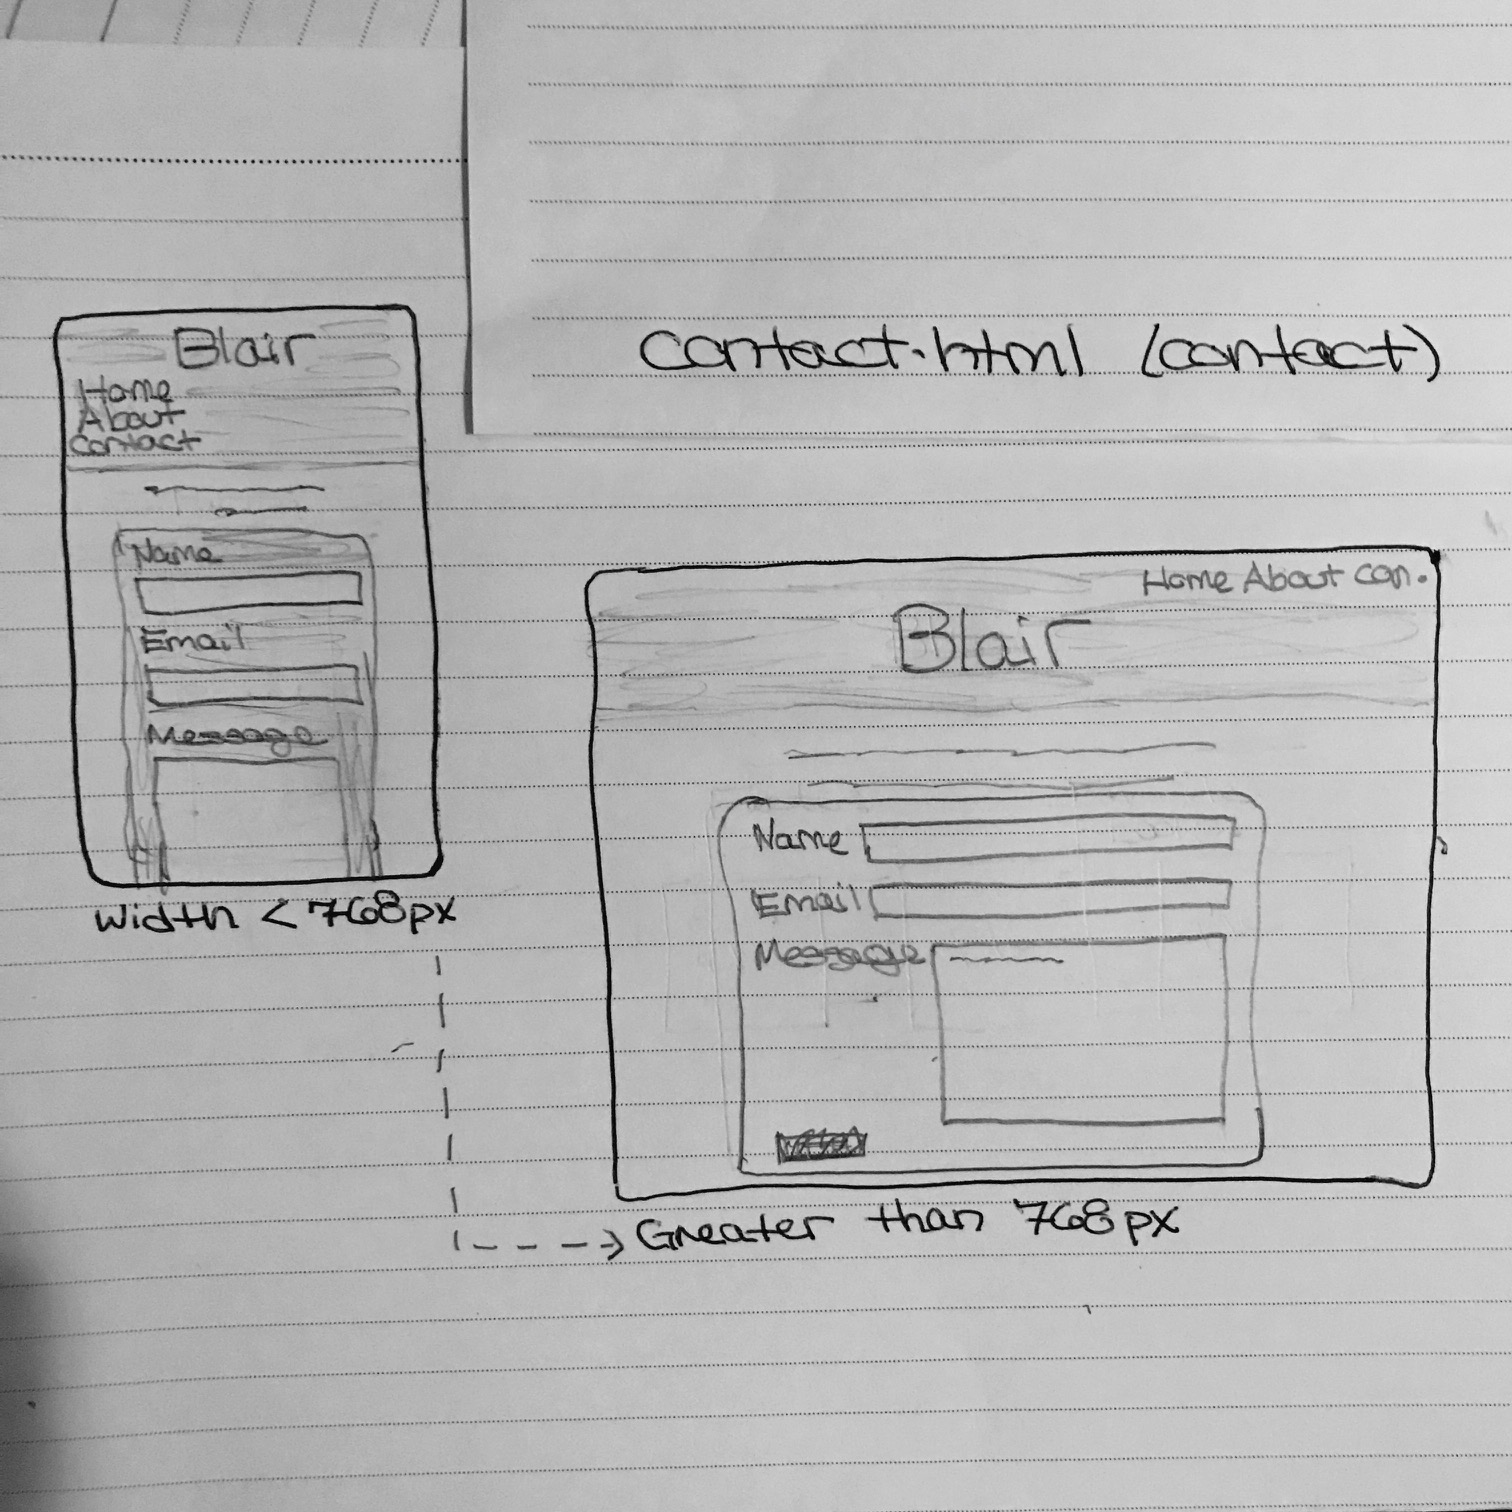 contact.html (contact)
Blair
Home
About
Contact
Name
Email
Message
width < 768px
Home About Con.
Blair
Name
Email
Message
Greater than 768px